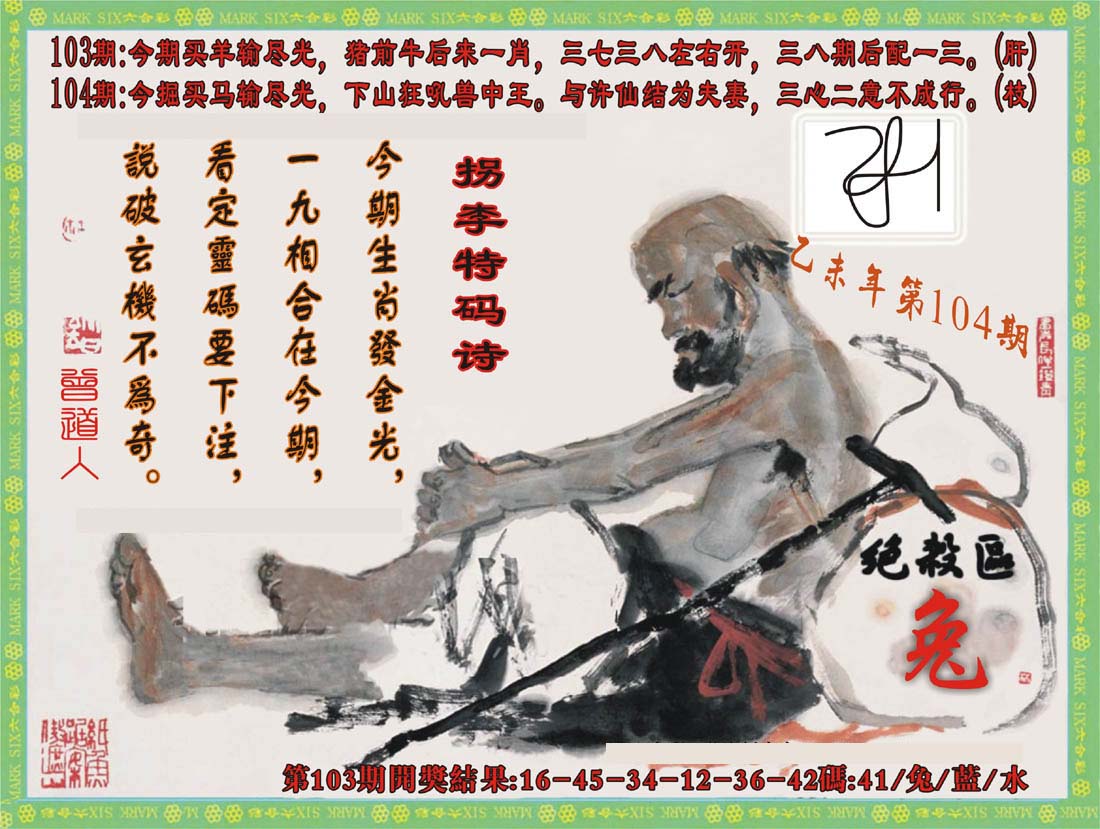 103期:今期买羊输尽光，猪前牛后来一肖，三七三八左右开，三八期后配一三。(肝)
104期:今掘买马输尽光，下山狂吼兽中王。与许仙结为夫妻，三心二意不成行。(枝)
拐李特码诗
今期生肖發金光，
一九相合在今期，
看定靈碼要下注，
說破玄機不爲奇。
曾道人
乙未年第104期
绝殺區
兔
第103期開獎結果:16-45-34-12-36-42碼:41/兔/藍/水
MARK SIX六合彩